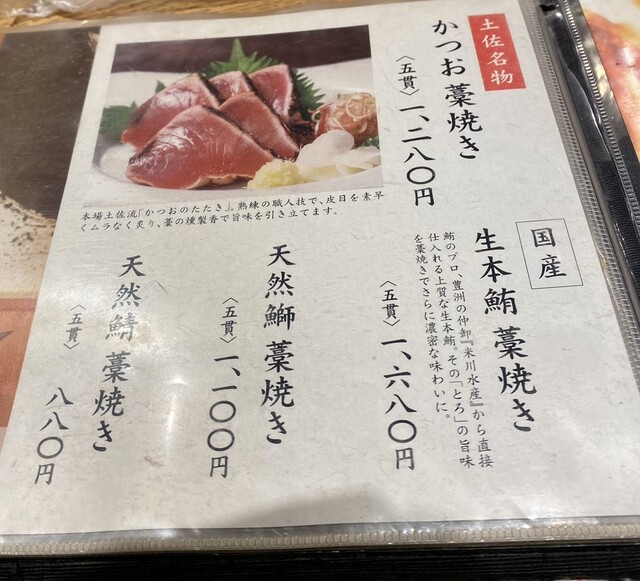 土佐名物
かつお藁焼き
〈五貫〉一、二八〇円
本場土佐流「かつおのたたき」。熟練の職人技で、皮目を素早
くムラなく炙り、藁の燻製香で旨味を引き立てます。
国産
生本鮪藁焼き
鮪のプロ、豊洲の仲卸『米川水産』から直接
仕入れる上質な生本鮪。その「とろ」の旨味
を藁焼きでさらに濃密な味わいに。
〈五貫〉一、六八〇円
天然鰤藁焼き
〈五貫〉一、一〇〇円
天然鯖藁焼き
〈五貫〉八八〇円